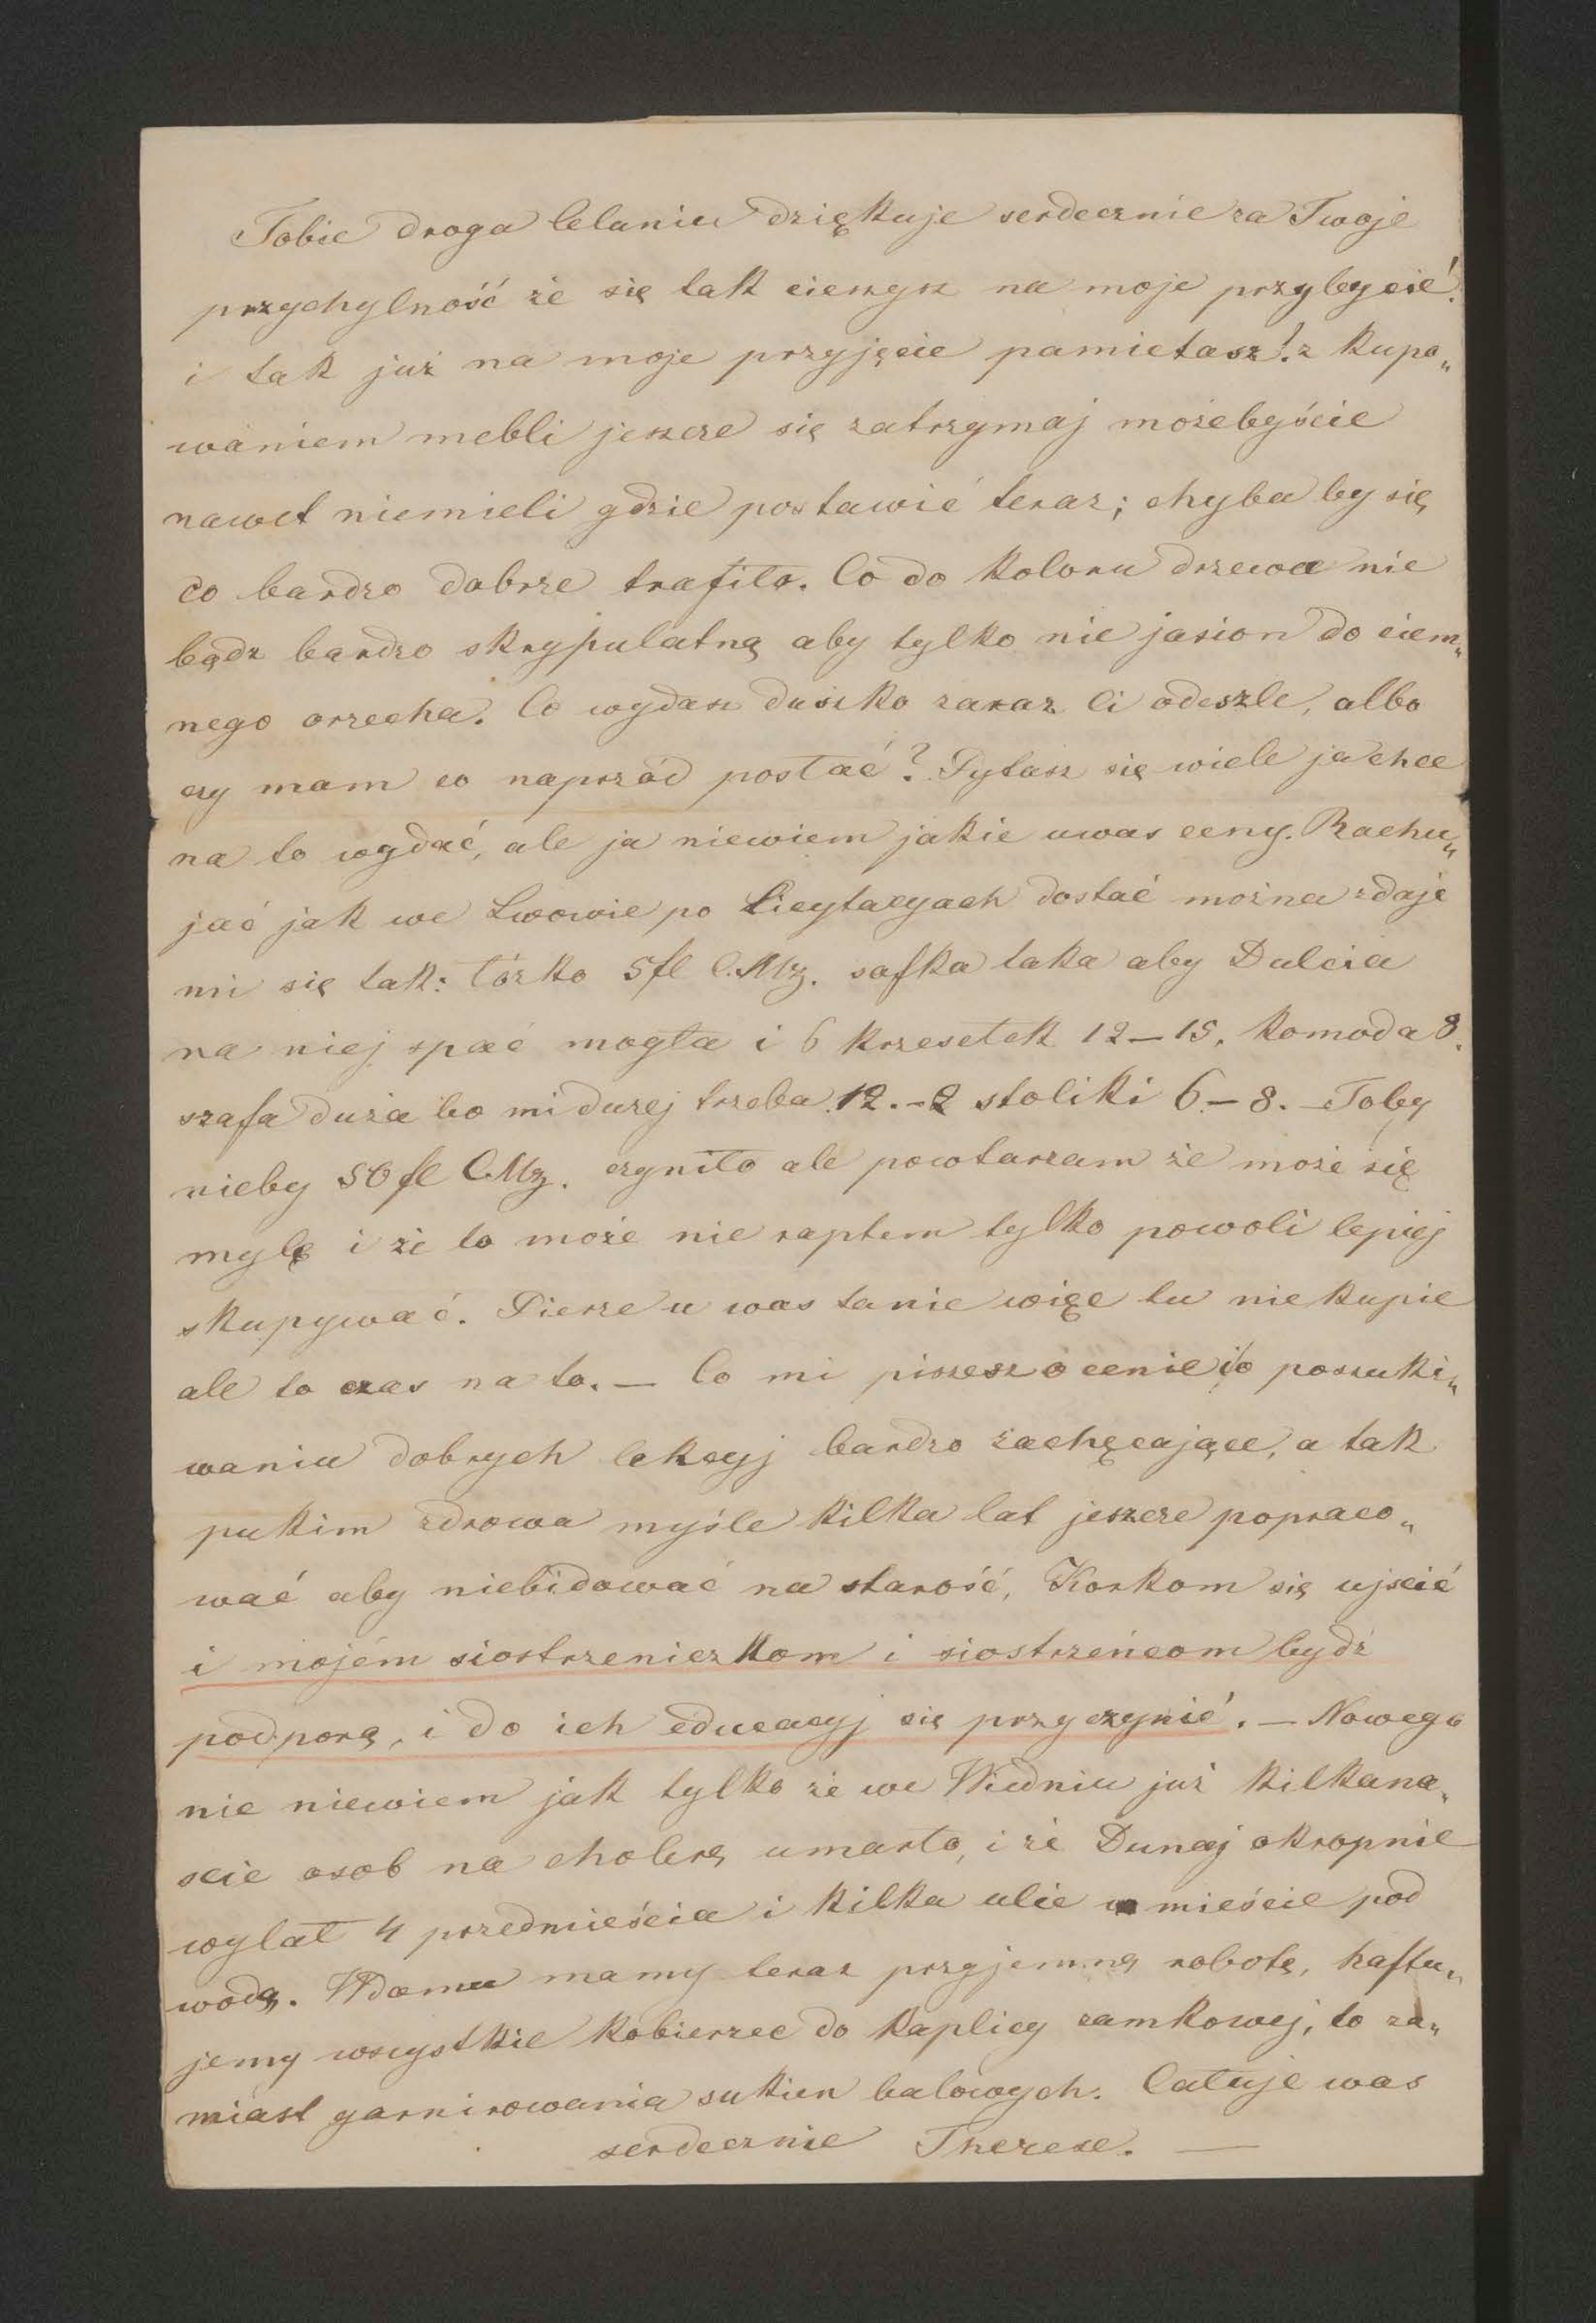 Tobie droga Celuniu dziękuje serdecznie za Twoje
przychylność że się tak cieszysz na moje przybycie!
i tak już na moje przyjęcie pamietasz! z kupo„
waniem mebli jeszcze się zatrzymaj możebyście
nawet niemieli gdzie postawić teraz; chyba by się
co bardzo dobrze trafiło. Co do koloru drzewa nie
bądz bardzo skrypulatną aby tylko nie jasion do ciem„
nego orzecha. Co wydasz duszko zaraz Ci odeszle, albo
czy mam co naprzód posłać? Pytasz się wiele ja chce
na to wydać, ale ja niewiem jakie uwas ceny. Rachu„
jąc jak we Lwowie po Licytacyach dostać można zdaje
mi się tak: łózko 5 fl C.Mz. sofka taka aby Dulcia
na niej spać mogła i 6 krzesełek 12–15. komoda 8.
szafa duża bo mi dużej trzeba 12.–2 stoliki 6–8. – Toby
nieby 50 fl C.Mz. czyniło ale powtarzam że może się
mylę i że to może nie raptem tylko powoli lepiej
skupywać. Pierze u was tanie więc tu nie kupie
ale to czas na to. — Co mi piszesz o cenie i o poszuki„
waniu dobrych lekcyj bardzo zachęcające, a tak
pukim zdrowa myśle kilka lat jeszcze popraco„
wać aby niebidować na starość, Korkom się ujscić
i mojém siostrzeniczkom i siostrzeńcom bydź
podporą, i do ich educacyj się przyczynić. — Nowego
nic niewiem jak tylko że we Wiedniu już kilkana„
scie osob na cholerą umarło, i że Dunaj okropnie
wylał 4 przedmieścia i kilka ulic w mieście pod
wodą. Wdomu mamy teraz przyjemną robotę, haftu„
jemy wszystkie kobierzec do kaplicy zamkowej, to za„
miast garnirowania sukien balowych. Całuje was
serdecznie Therese. —